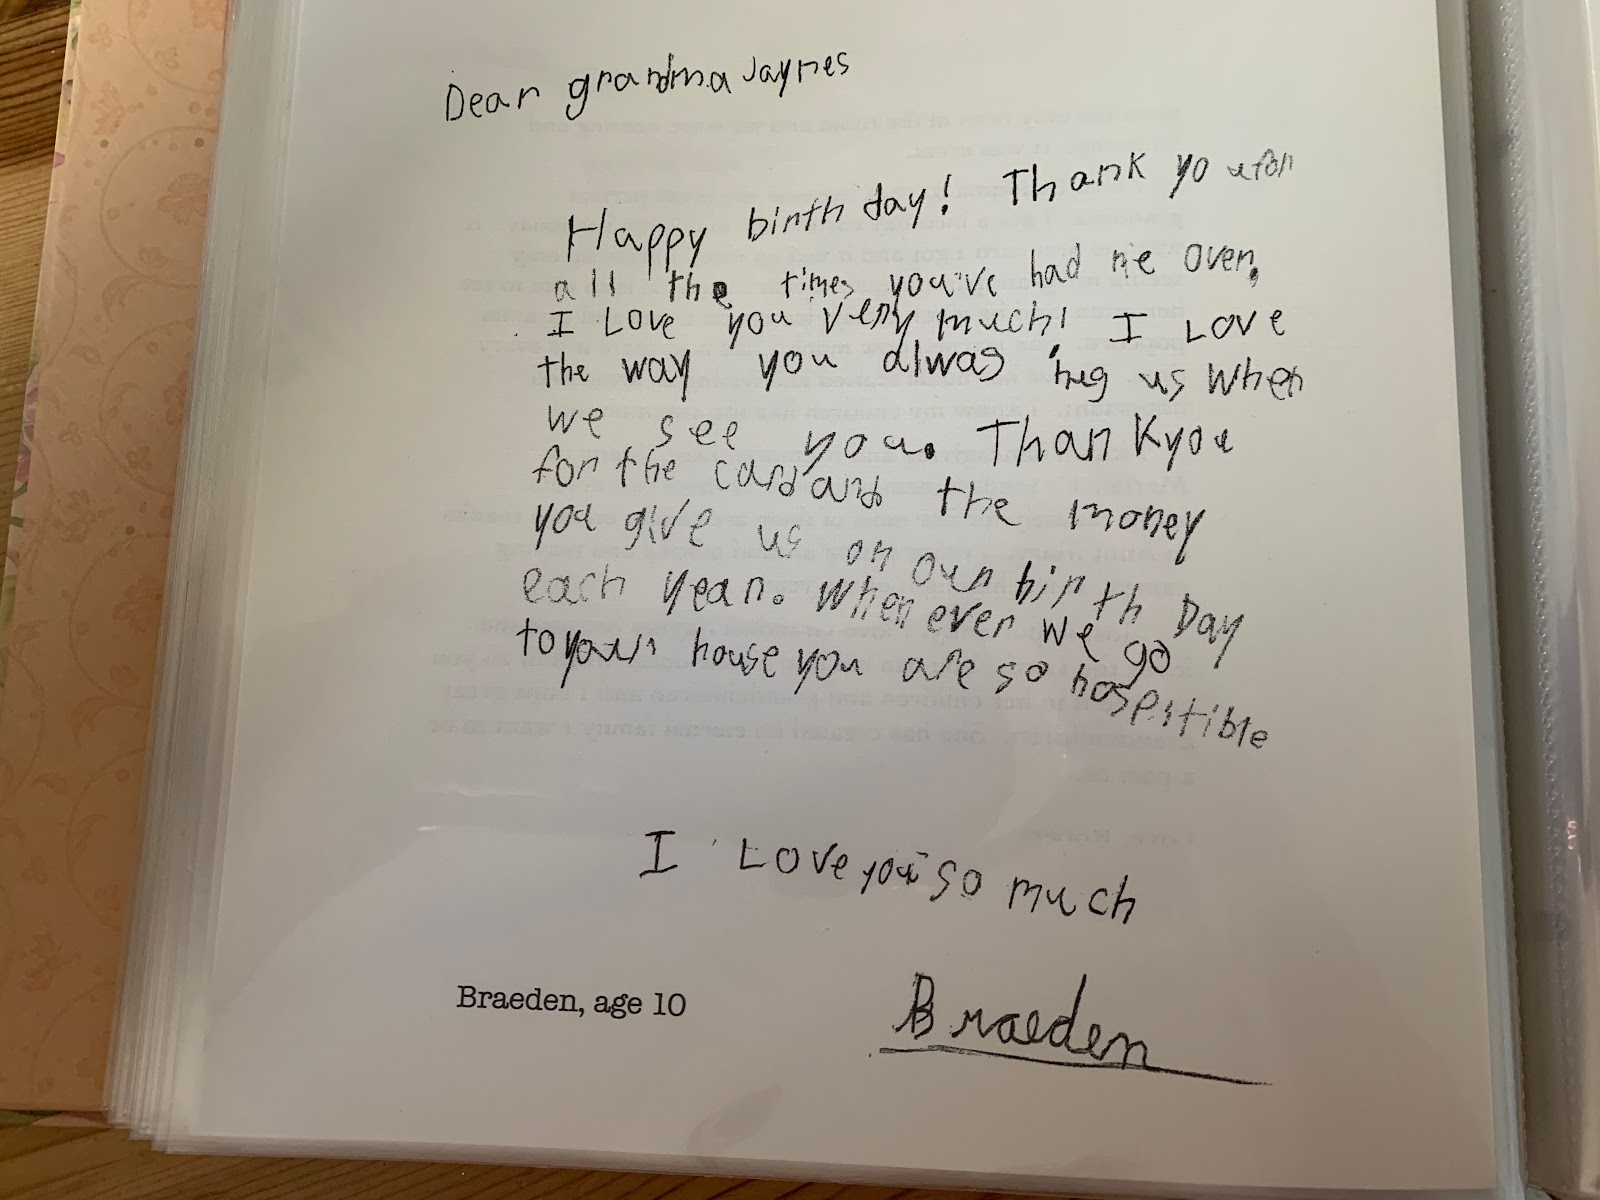 Dear grandma Jaynes
Happy birthday! Thank you for
all the times you've had me over.
I Love you very much! I Love
the way you alwas hug us When
we see you. Thank you
for the card and the money
you give us on our birthDay
each year. When ever we go
to your house you are so hospitible
I Love you so much
Braeden, age 10
Braeden